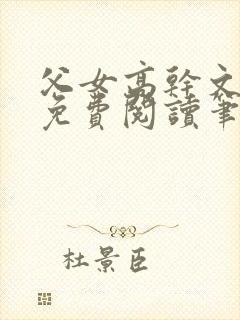 父女高幹文
免費閱讀筆
杜景臣